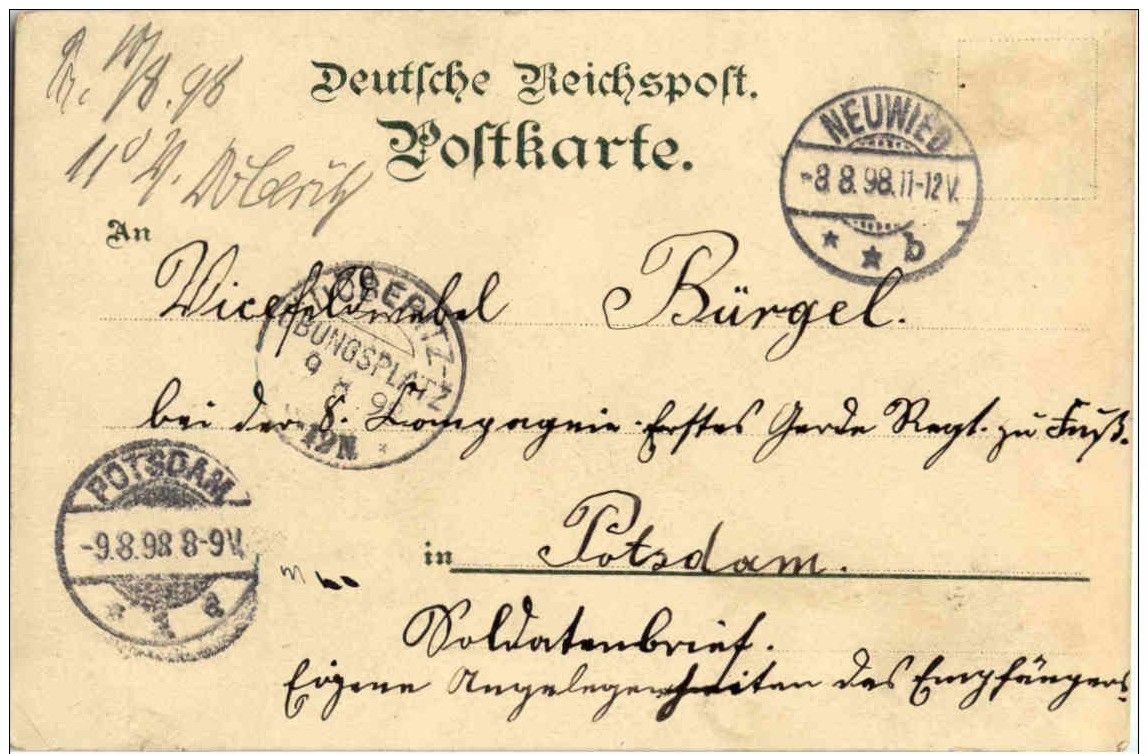 10/8.98
11 Döberitz
Deutsche Reichspost.
Postkarte.
NEUWIED
-8.8.98.11-12V.
* * b
An
Vicefeldwebel Bürgel.
DOEBERITZ-
ÜBUNGSPLATZ
9 8 98
12N
bei der 8. Kompagnie Erstes Garde Regt. zu Fuß.
POTSDAM
-9.8.98 8-9V.
in Potsdam.
Soldatenbrief.
Eigene Angelegenheiten des Empfängers